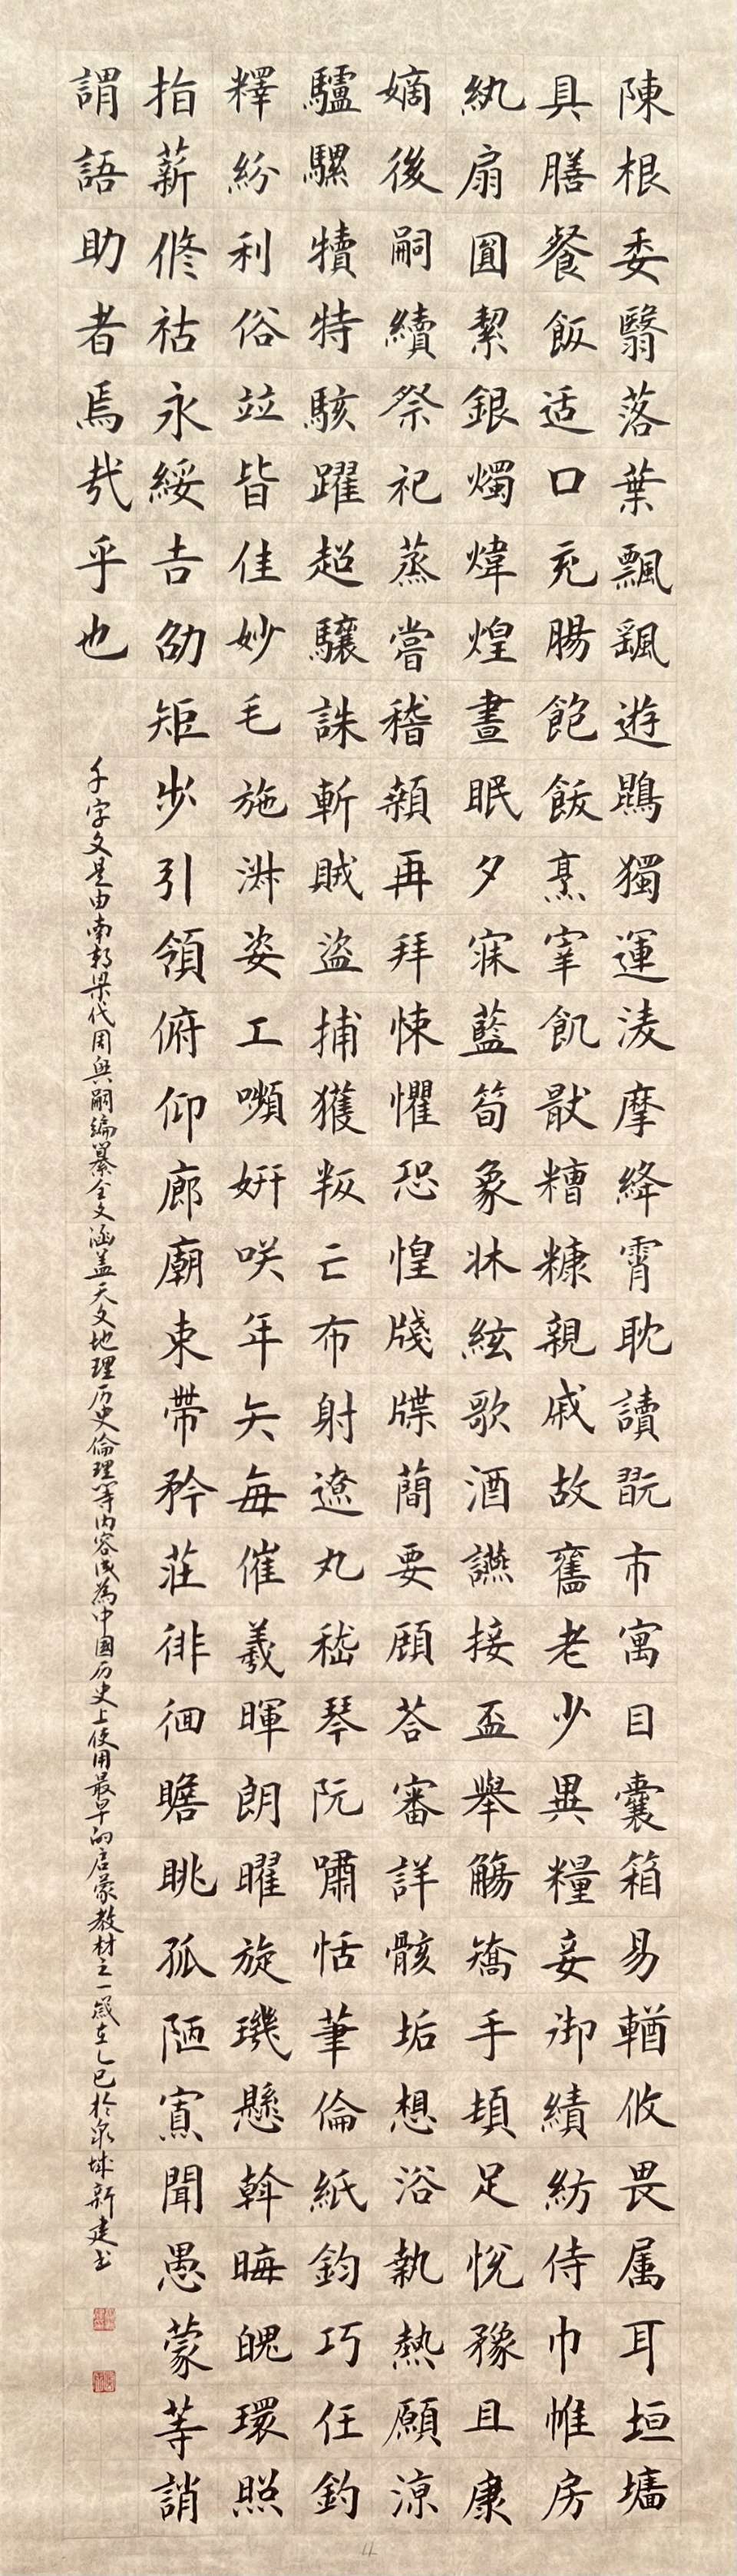 陳根委翳落葉飄颻遊鵾獨運淩摩絳霄耽讀翫市寓目囊箱易輶攸畏属耳垣墻
具膳餐飯适口充腸飽飫烹宰飢猒糟糠親戚故舊老少異糧妾御績紡侍巾帷房
紈扇圓絜銀燭煒煌晝眠夕寐藍筍象牀絃歌酒讌接盃舉觴矯手頓足悅豫且康
嫡後嗣續祭祀蒸嘗稽顙再拜悚懼恐惶牋牒蕳要顧荅審詳骸垢想浴執熱願涼
驢騾犢特駭躍超驤誅斬賊盜捕獲叛亡布射遼丸嵇琴阮嘯恬筆倫紙鈞巧任釣
釋紛利俗竝皆佳妙毛施淋姿工嚬妍咲年矢每催羲暉朗曜旋璣懸斡晦魄環照
指薪脩祜永綏吉劭矩步引領俯仰廊廟束帶矜莊徘徊瞻眺孤陋寡聞愚蒙等誚
謂語助者焉哉乎也
千字文是由南朝梁代周興嗣编纂全文涵盖天文地理历史倫理等内容成為中国历史上使用最早的启蒙教材之一歲在乙巳於泉城新建书
4